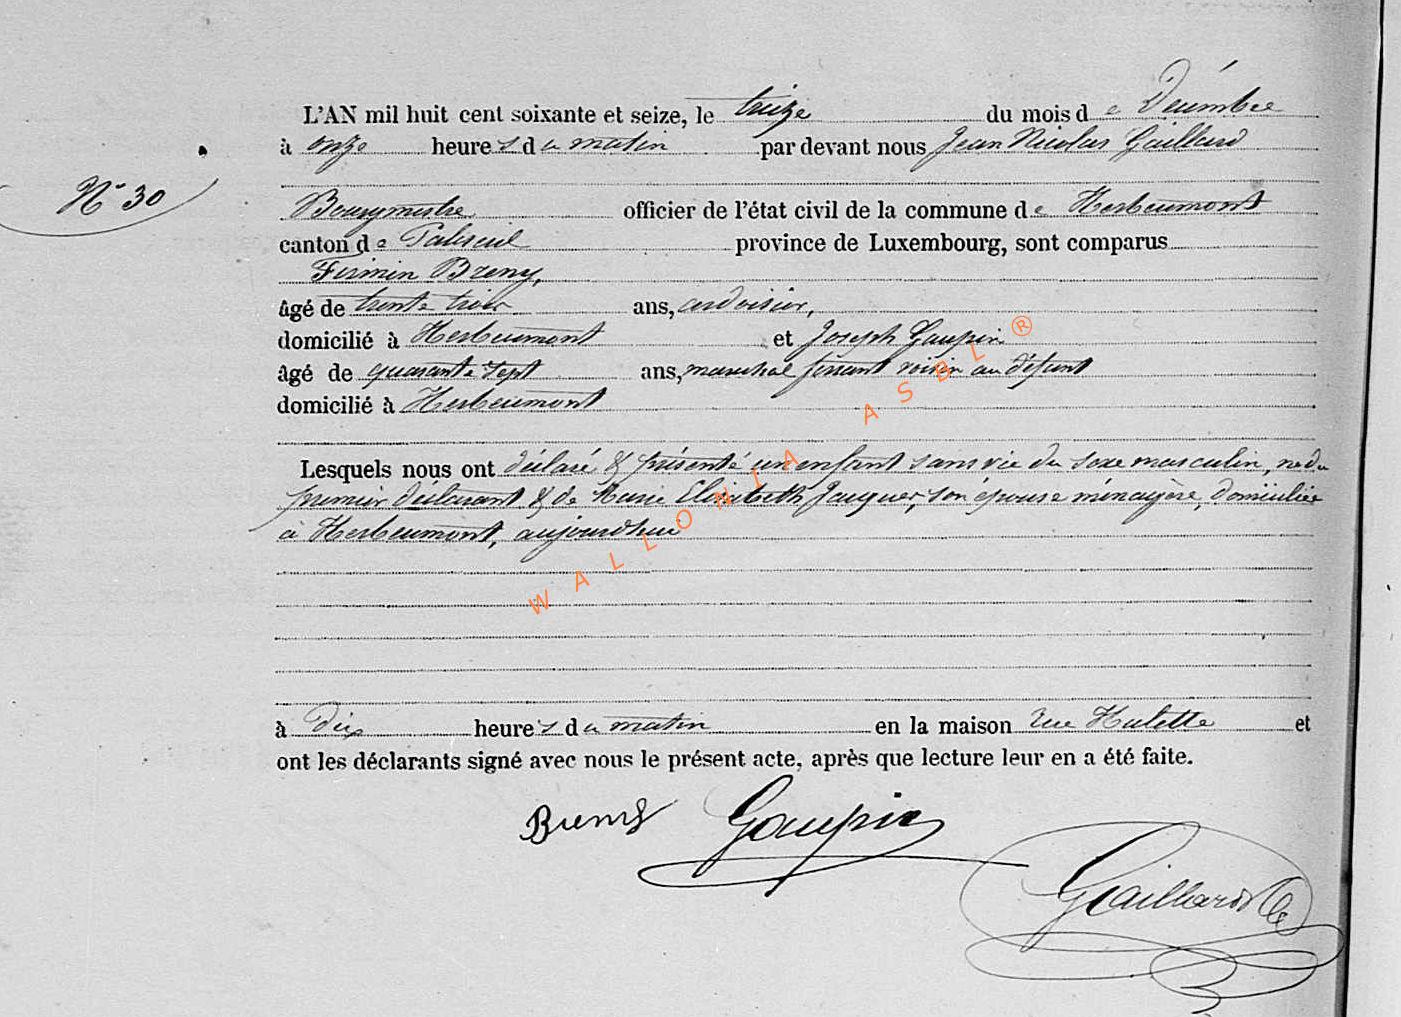 L'AN mil huit cent soixante et seize, le treize du mois de Décembre
à onze heures du matin par devant nous Jean Nicolas Gaillard
N° 30
Bourgmestre officier de l'état civil de la commune de Herbeumont
canton de Paliseul province de Luxembourg, sont comparus
Firmin Breny,
âgé de trente trois ans, ardoisier,
domicilié à Herbeumont et Joseph Gaupin
âgé de quarante sept ans, maréchal ferrant voisin au défunt
domicilié à Herbeumont
Lesquels nous ont déclaré & présenté un enfant sans vie du sexe masculin, né du
premier déclarant & de Marie Elisabeth Jacques, son épouse ménagère, domiciliée
à Herbeumont, aujourdhui
WALLONIA ASBL ®
à dix heures du matin en la maison rue Hulette et
ont les déclarants signé avec nous le présent acte, après que lecture leur en a été faite.
Breny Gaupin
Gaillard